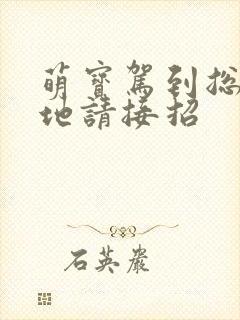 萌寶駕到總
地請接招
石英嚴